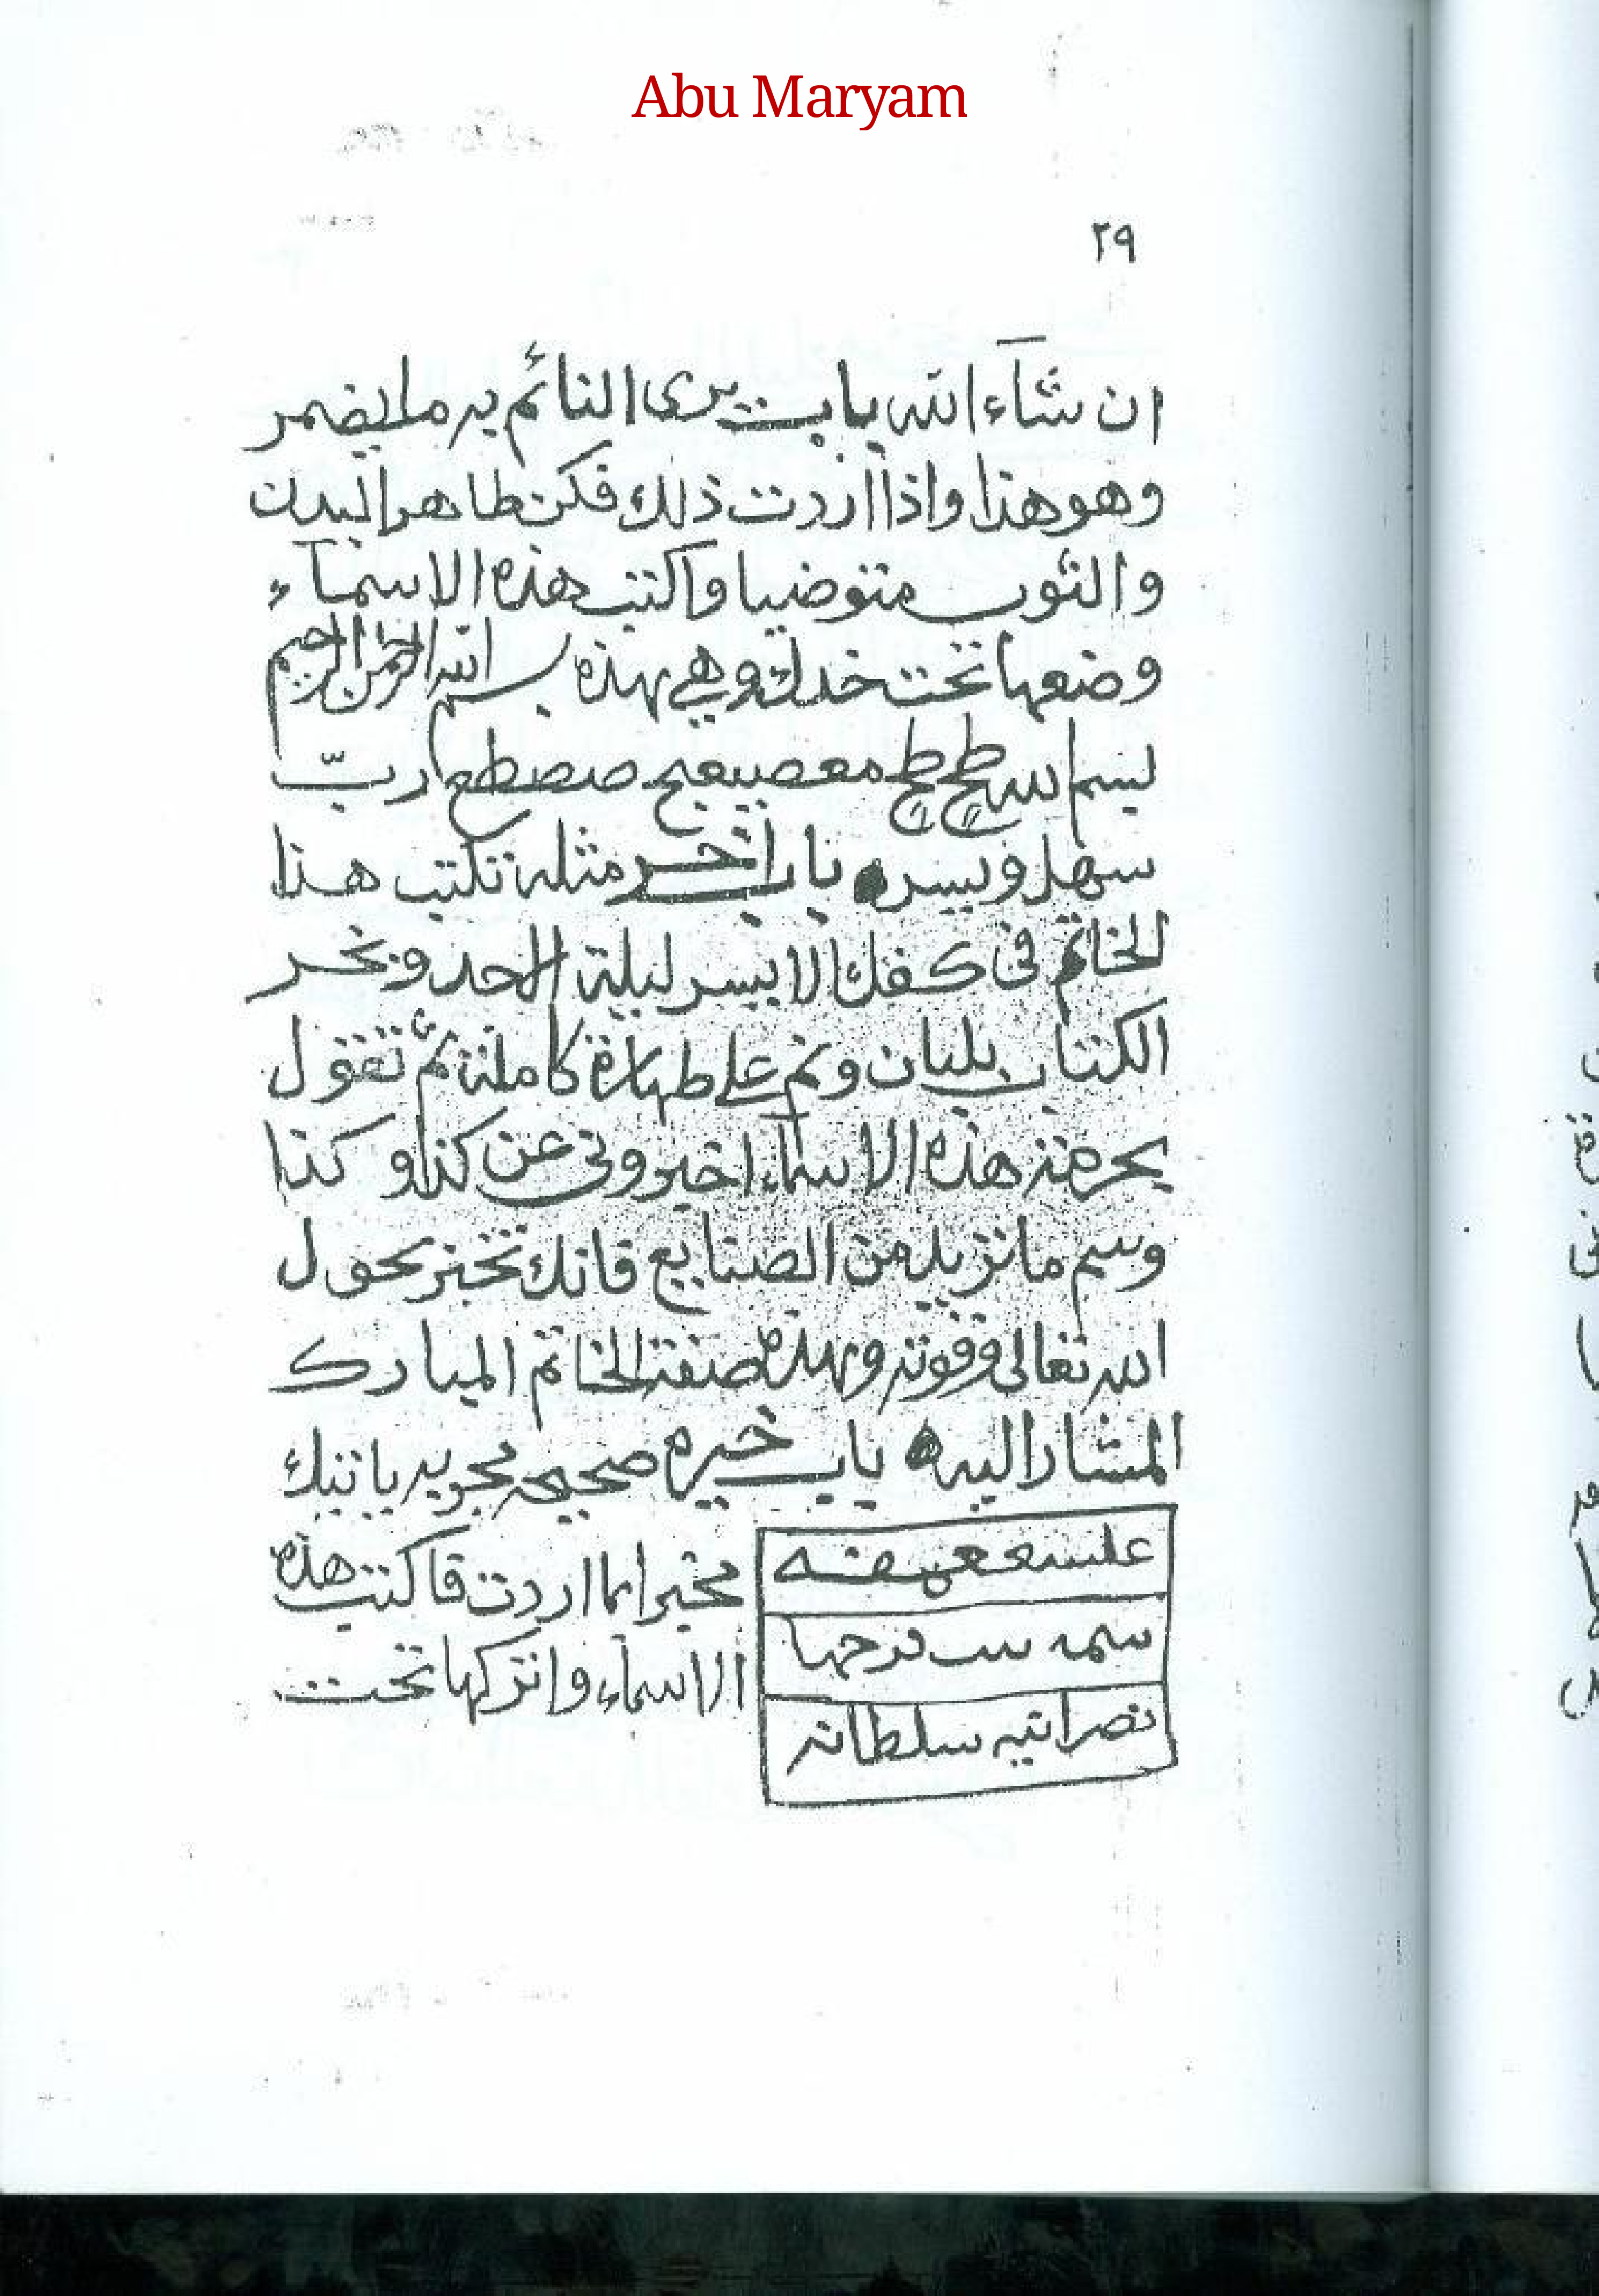 Abu Maryam
٢٩
ان شآء الله باب يرى النائم به ما يضمر
وهو هذا واذا اردت ذلك فكن طاهر البدن
والثوب متوضيا واكتب هذه الاسمآء
وضعها تحت خدك وهي هذه بسم الله الرحمن الرحيم
رب
سهل ويسره باب اخر مثله تكتب هذا
الخاتم فى كفك الايسر ليلة الاحد وبخر
الكتاب بلبان ونم على طهارة كاملة ثم تقول
بحرمة هذه الاسمآء اخبرونى عن كذا وكذا
وسم ما تريد من الصنايع فانك تخبر بحول
الله تعالى وقوته وهذه صفة الخاتم المبارك
المشار اليه باب خيره صحيحه مجربه ياتيك
مخبرا بما اردت فاكتب هذه
الاسمآء واتركها تحت
سلطانه